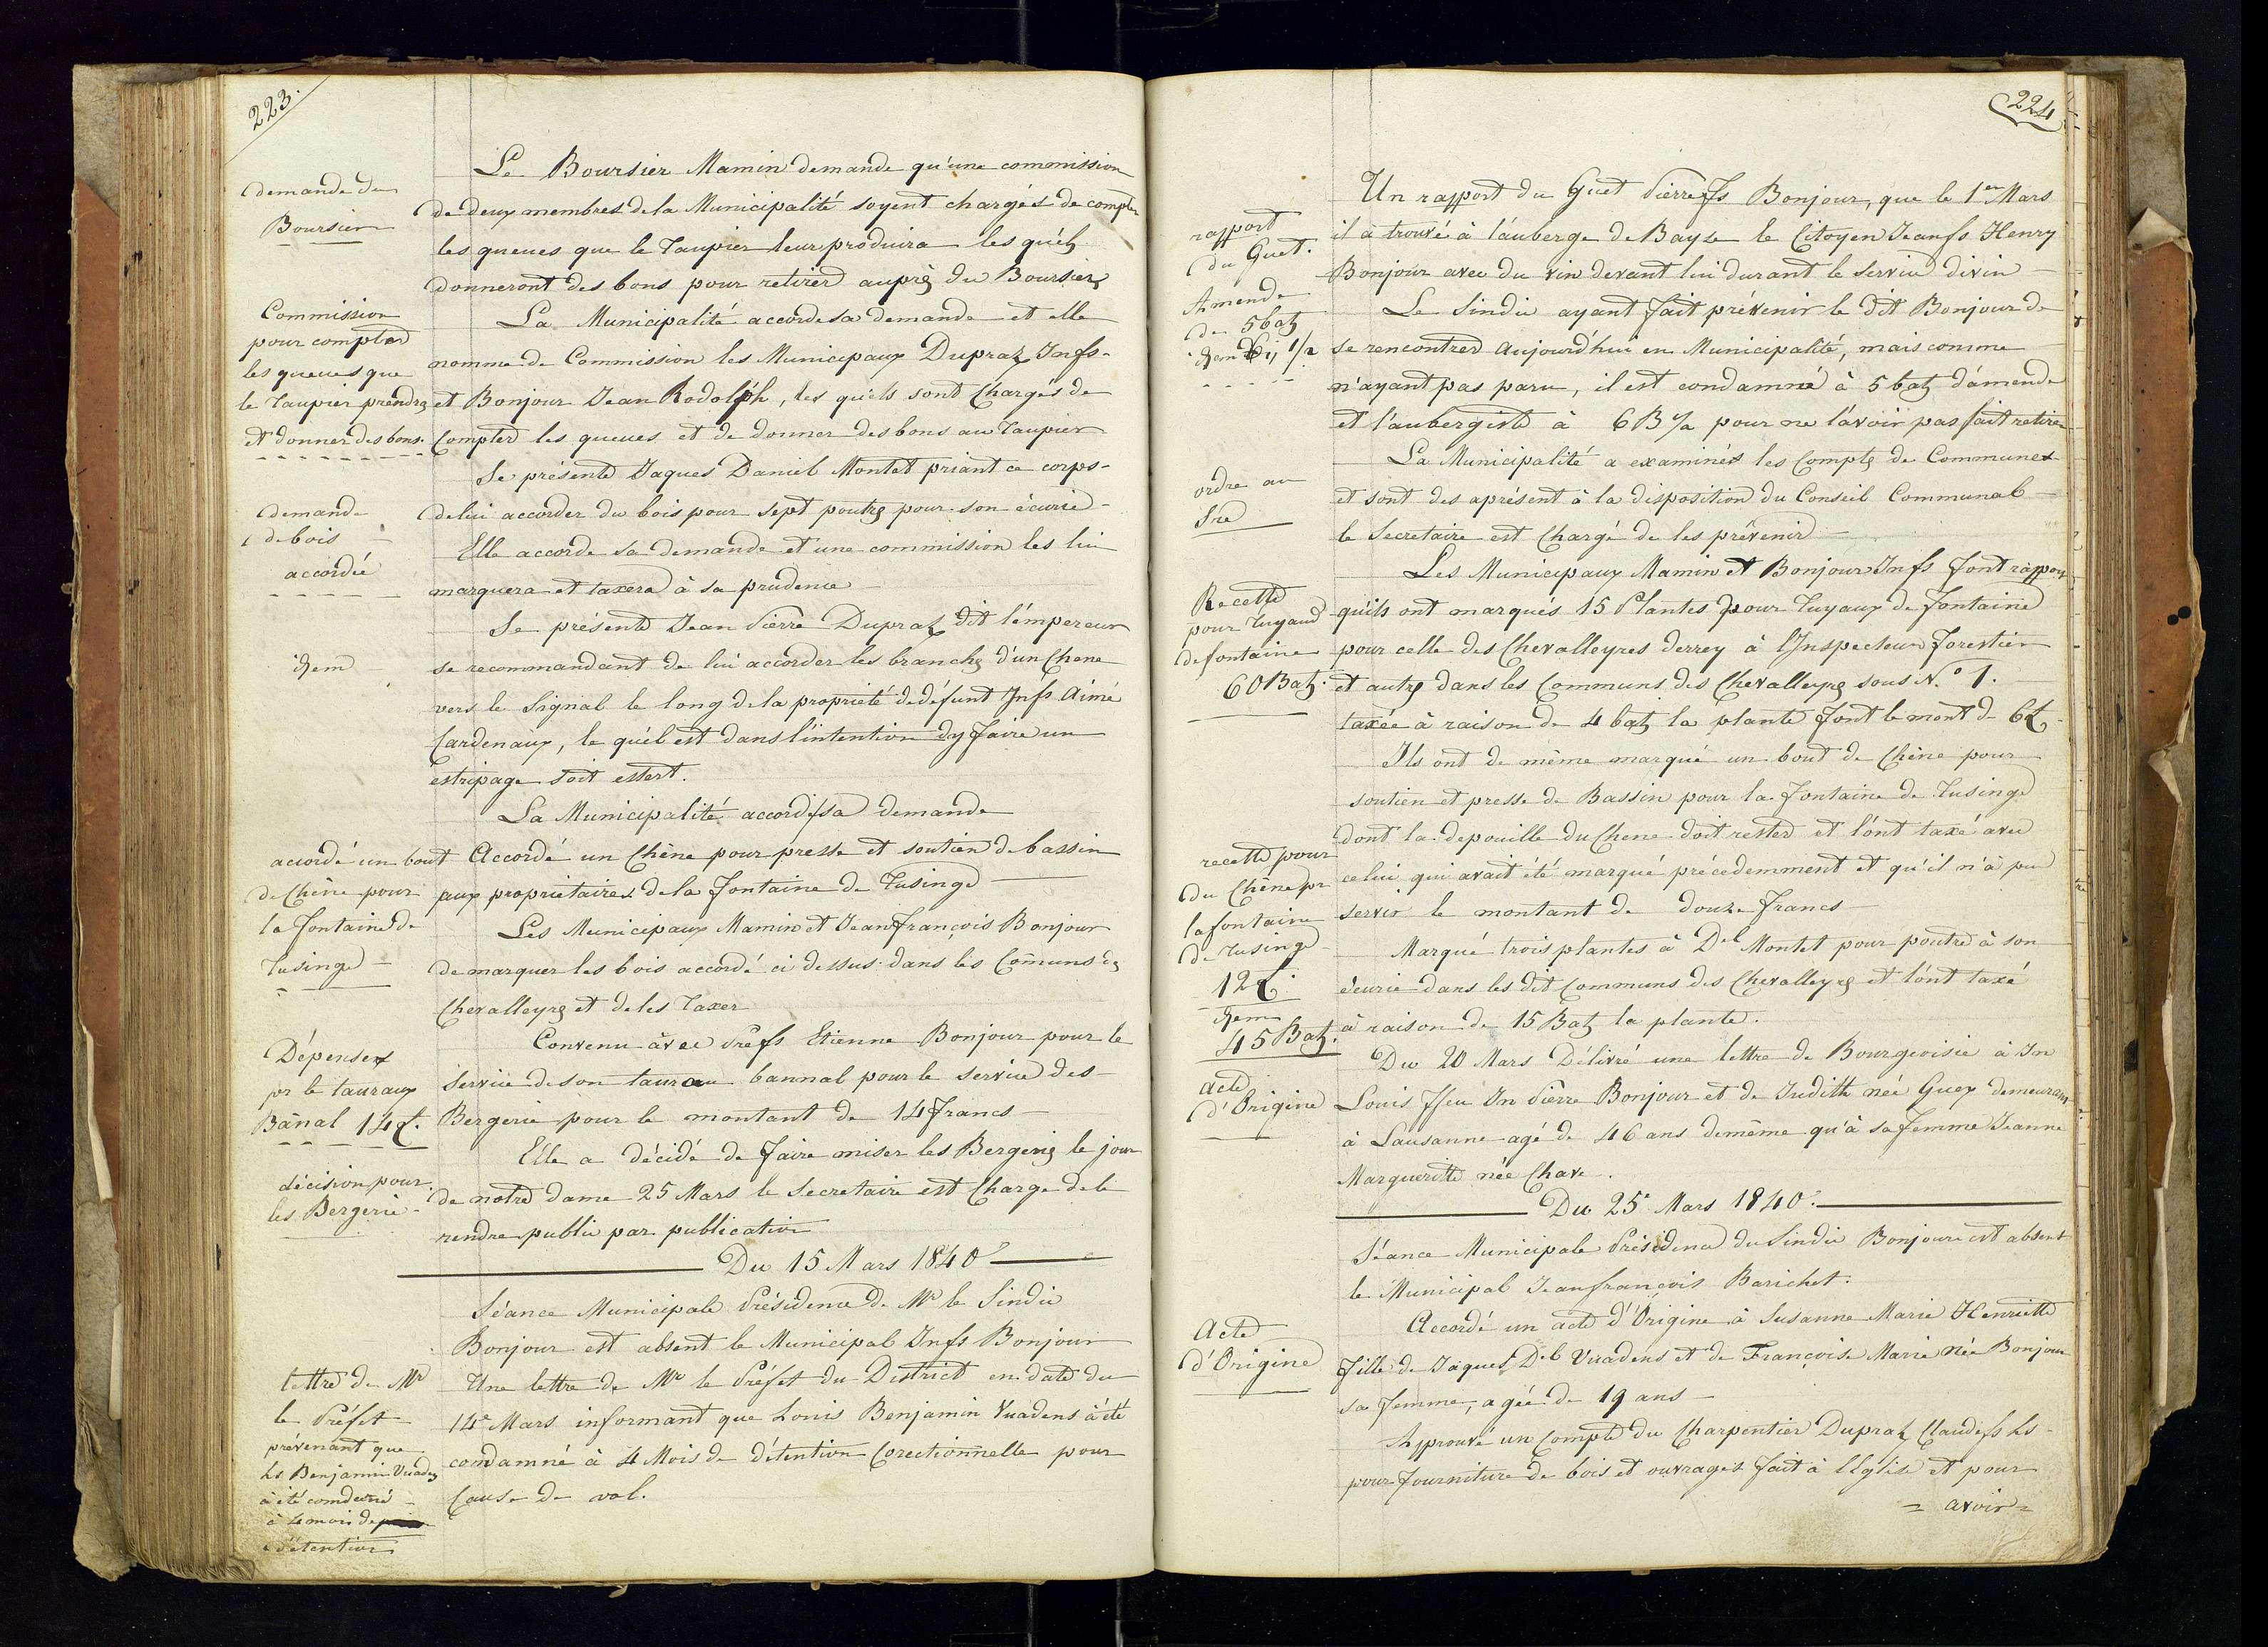 223.
demande du
Boursier
Commission
pour compter
les queues que
le Taupier prendra
et donner des bons.
demande
de bois
accordée
idem
accordé un bout
de Chêne pour
la fontaine de
Tusinge
Dépenses
pr le tauraux
Bânal 14 L.
décision pour
les Bergerie
lettre de Mr
le Préfet
prévenant que
Ls Benjamin Vuadens
à été comdamné
à 4 mois de
détention
Le Boursier Mamin demande qu'une commission
de deux membres de la Municipalité soyent chargés de compter
les queues que le Taupier leur produira les quels
donneront des bons pour retirer auprès du Boursier
La Municipalité accorde sa demande et elle
nomme de Commission les Municipaux Dupraz Jnfs
et Bonjour Jean Rodolph, les quiels sont Chargés de
Compter les queues et de donner des bons au Taupier
Se présente Jaques Daniel Montet priant ce corps
de lui accorder du bois pour sept poutres pour son écurie
Elle accorde sa demande et une commission les lui
marquera et taxera à sa prudence
Se présente Jean Pierre Dupraz dit l'émpereur
se recommandant de lui accorder les branches d'un Chene
vers le Signal le long de la proprieté de défunt Jnfs Aimé
Cardenaux, le quél est dans l'intention d'y faire un
estripage soit essert.
La Municipalité accorde sa demande
Accordé un Chêne pour presse et soutien de bassin
aux propriétaires de la fontaine de Tusinge
Les Municipaux Mamin et Jeanfrançois Bonjour
de marquer les bois accordé ci dessus dans les Comuns des
Chevalleyres et de les Taxer
Convenu àvec Prefs Etienne Bonjour pour le
service de son taurau bannal pour le service des
Bergerie pour le montant de 14 francs
Elle a décidé de faire miser les Bergeries le jour
de notre dame 25 Mars le Secretaire est Charge de le
rendre public par publication
Du 15 Mars 1840
Séance Municipale Présidence de Mr le Sindic
Bonjour est absent le Municipal Jnfs Bonjour
Une lettre de Mr le Préfet du District en date du
14e Mars informant que Louis Benjamin Vuadens à été
condamné à 4 Mois de détention Corectionnelle pour
Cause de vol.
224
rapport
du Guet.
Amende
de 5 batz
idem 6 1/2
ordre au
Sre
Recette
pour Tuyaud
de fontaine
60 Batz.
recette pour
du Chêne pr
la fontaine
de Tusinge
12 L.
idem
45 Batz.
acte
d'Origine
Acte
d'Origine
Un rapport du Guet Pierre fs Bonjour, que le 1er Mars
il a trouvé à l'auberge de Bayse le Citoyen Jean fs Henry
Bonjour avec du vin devant lui durant le service divin
Le Sindic ayant fait prévenir le dit Bonjour de
se rencontrer aujourd'hui en Municipalité, mais comme
n'ayant pas paru, il est condamné à 5 batz d'amende
et l'aubergiste à 6 B 1/2 pour ne l'avoir pas fait retirer
La Municipalité a examinés les Compts de Communes
et sont des aprésent à la disposition du Conseil Communal
le Secretaire est Chargé de les prévenir
Les Municipaux Mamin et Bonjour Jnfs font rapport
qu'ils ont marqués 15 Plantes pour Tuyaux de fontaine
pour celle des Chevalleyres derrey à l'Inspecteur forestier
et autres dans les Communs des Chevalleyres sous N.o 1.
taxée à raison de 4 batz la plante font le mont de 6 L
Ils ont de même marqué un bout de Chêne pour
soutien et presse de Bassin pour la fontaine de Tusinge
dont la depouille du Chene doit rester et l'ont taxé avec
celui qui avait été marqué précédemment et qu'il n'à pu
servir le montant de douze francs
Marqué trois plantes à Del Montet pour poutre à son
écurie dans les dit Communs des Chevalleyres et l'ont taxé
à raison de 15 Batz la plante.
Du 20 Mars Délivré une lettre de Bourgeoisie à Jn
Louis ffeu Jn Pierre Bonjour et de Judith née Guex demeurant
à Lausanne agé de 46 ans demême qu'à sa femme Jeanne
Margueritte née Chave.
Du 25e Mars 1840.
Séance Municipale Présidence du Sindic Bonjour est absent
le Municipal Jeanfrançois Barichet.
Accordé un acte d'Origine à Susanne Marie Henriette
fille de Jaques Del Vuadens et de Françoise Marie née Bonjour
sa femme, agée de 19 ans
Approuvé un Compte du Charpentier Dupraz Claudefs Ls
pour fourniture de bois et ouvrages fait à l'Eglise et pour
= avoir =